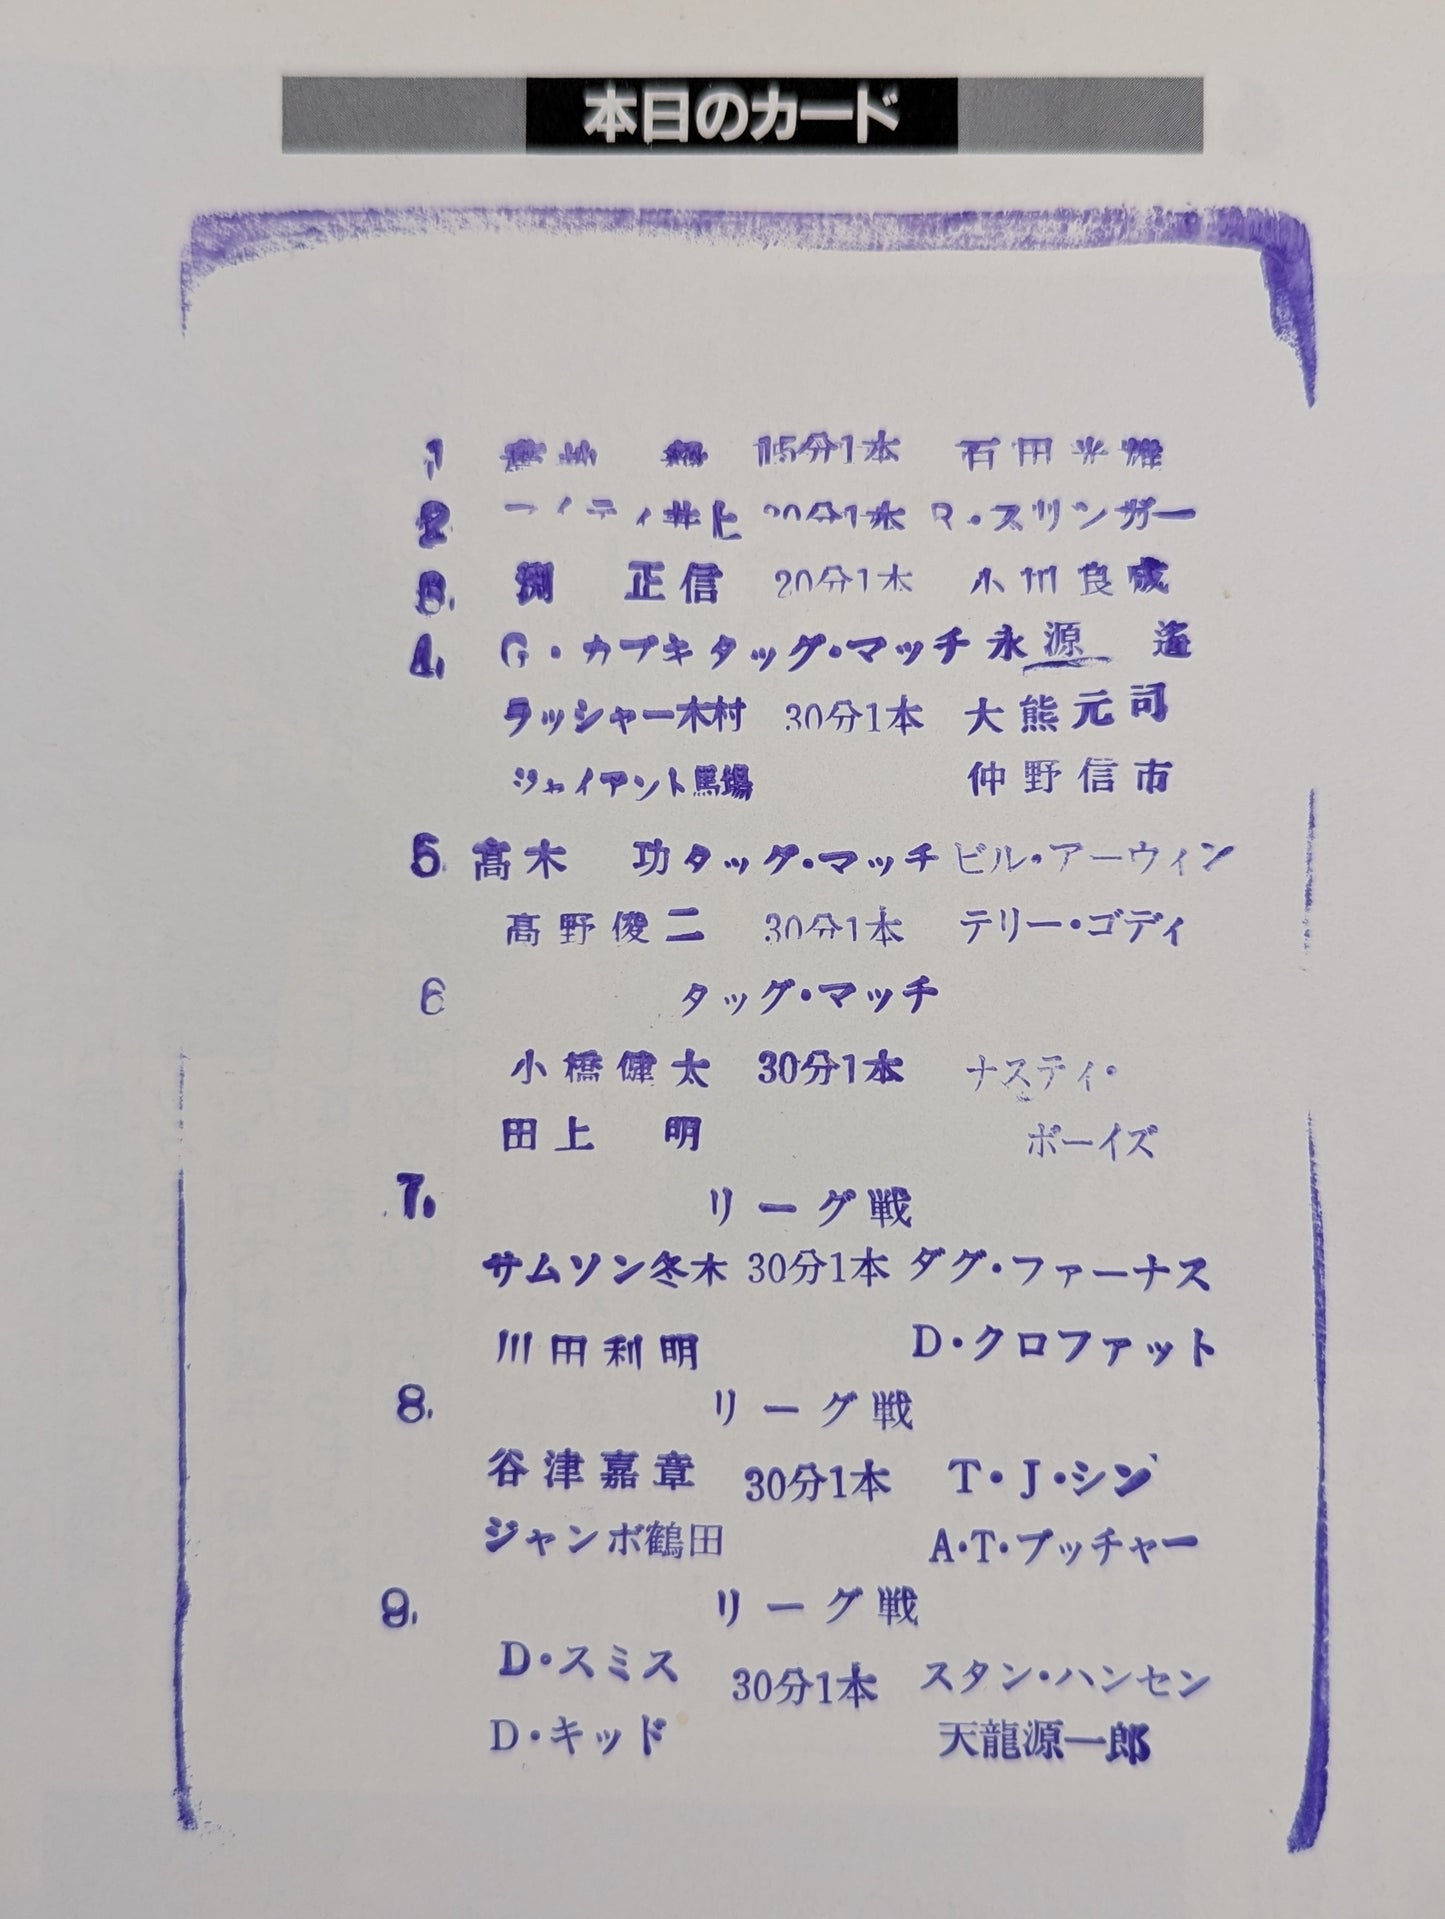 本日のカード
1 15分1本 石田光雄
2 マイティ井上 20分1本 R・スリンガー
3. 渕 正信 20分1本 小川良成
4. G・カブキ タッグ・マッチ 永源 遙
ラッシャー木村 30分1本 大熊元司
ジャイアント馬場 仲野信市
5. 高木 功 タッグ・マッチ ビル・アーウィン
高野俊二 30分1本 テリー・ゴディ
6 タッグ・マッチ
小橋健太 30分1本 ナスティ・
田上 明 ボーイズ
7. リーグ戦
サムソン冬木 30分1本 ダグ・ファーナス
川田利明 D・クロファット
8. リーグ戦
谷津嘉章 30分1本 T・J・シン
ジャンボ鶴田 A・T・ブッチャー
9. リーグ戦
D・スミス 30分1本 スタン・ハンセン
D・キッド 天龍源一郎